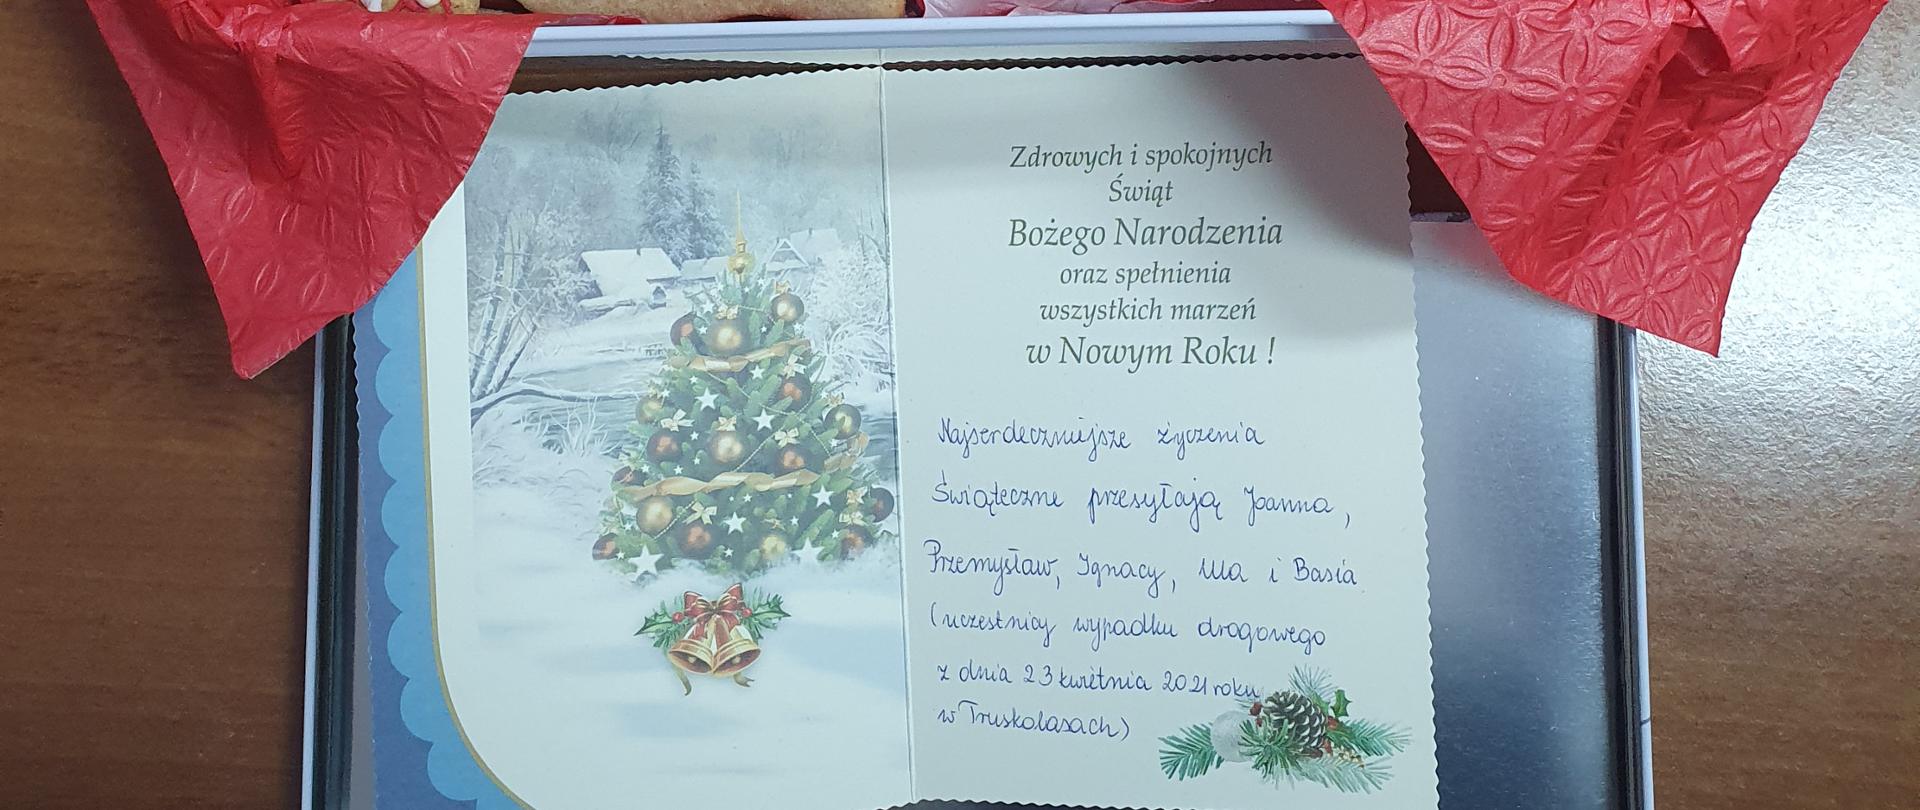 Zdrowych i spokojnych
Świąt
Bożego Narodzenia
oraz spełnienia
wszystkich marzeń
w Nowym Roku !
Najserdeczniejsze życzenia
Świąteczne przesyłają Joanna,
Przemysław, Ignacy, Ula i Basia
(uczestnicy wypadku drogowego
z dnia 23 kwietnia 2021 roku
w Truskolasach)